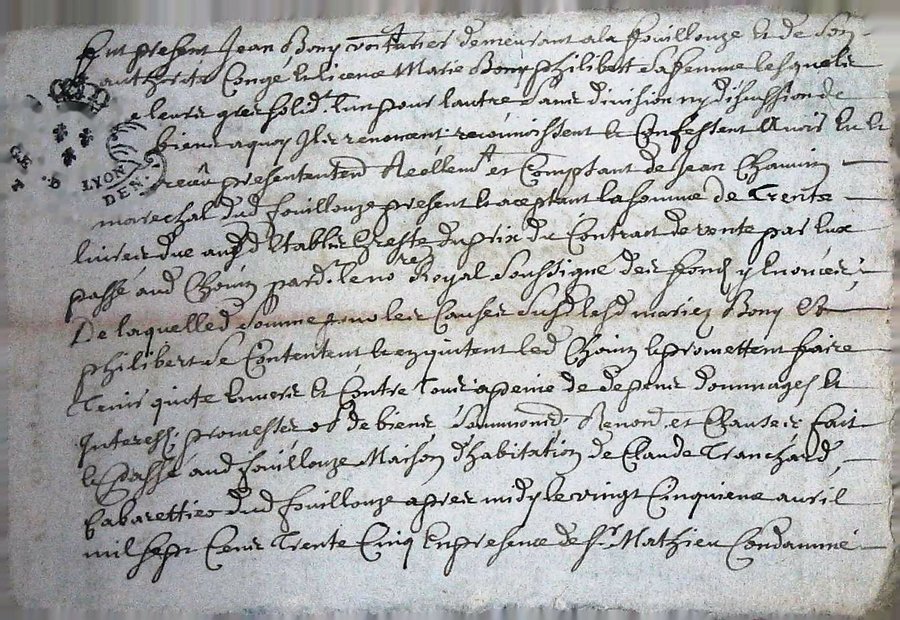 Fut present Jean Bony voiturier demeurant a la fouillouze et de son
authorité Congé et licence Marie Bony philibert sa femme lesquels
de leurs gres solidt l'un pour l'autre sans division ny discussion de
biens a quoy Ils renoncent reconnoissent et Confessent Avoir Eu et
receu presentement Reellemt et Comptant de Jean Chauvin
LYON
DEN.
marechal dud fouillouze present et aceptant la somme de Trente
livres due aud d'Etablir et reste du prix du Contract de vente par Eux
passé aud par dt le no.re Royal soussigné des fonds y Enoncés,
De laquelle d. somme pour les Causes susd lesd mariez Bony et
philibert se Contentent et en quitent led et promettent faire
Tenir quite Envers et Contre Tous a peine de depens dommages et
Interests promesses ob de biens soumissiond Renond et Clauses fait
et passé aud fouillouze Maison d'habitation de Claude Tranchard,
Cabarettier dud fouillouze apres midy le vingt Cinquieme avril
mil sept Cens Trente Cinq En presence de sr. Mathieu Condamine